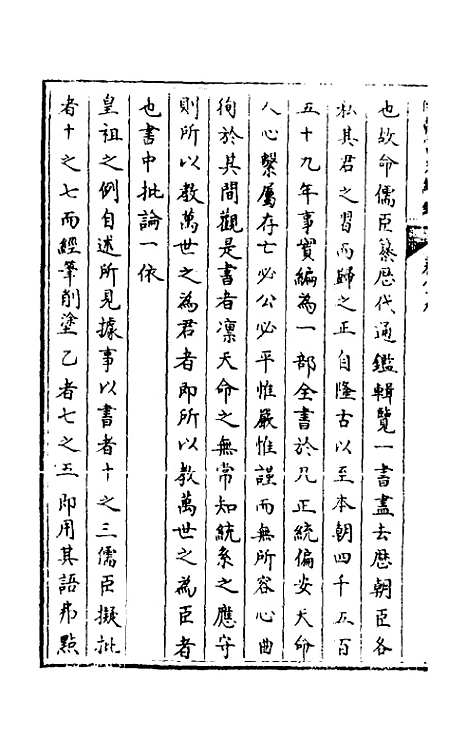 也故命儒臣纂歴代通鑑輯覽一書盡去歴朝臣各
私其君之習而歸之正自隆古以至本朝四千五百
五十九年事實編為一部全書於凡正統偏安天命
人心繫屬存亡必公必平惟嚴惟謹而無所容心曲
徇於其間觀是書者凜天命之無常知統系之應守
則所以教萬世之為君者即所以教萬世之為臣者
也書中批論一依
皇祖之例自述所見據事以書者十之三儒臣擬批
者十之七而經筆削塗乙者七之五即用其語弗點